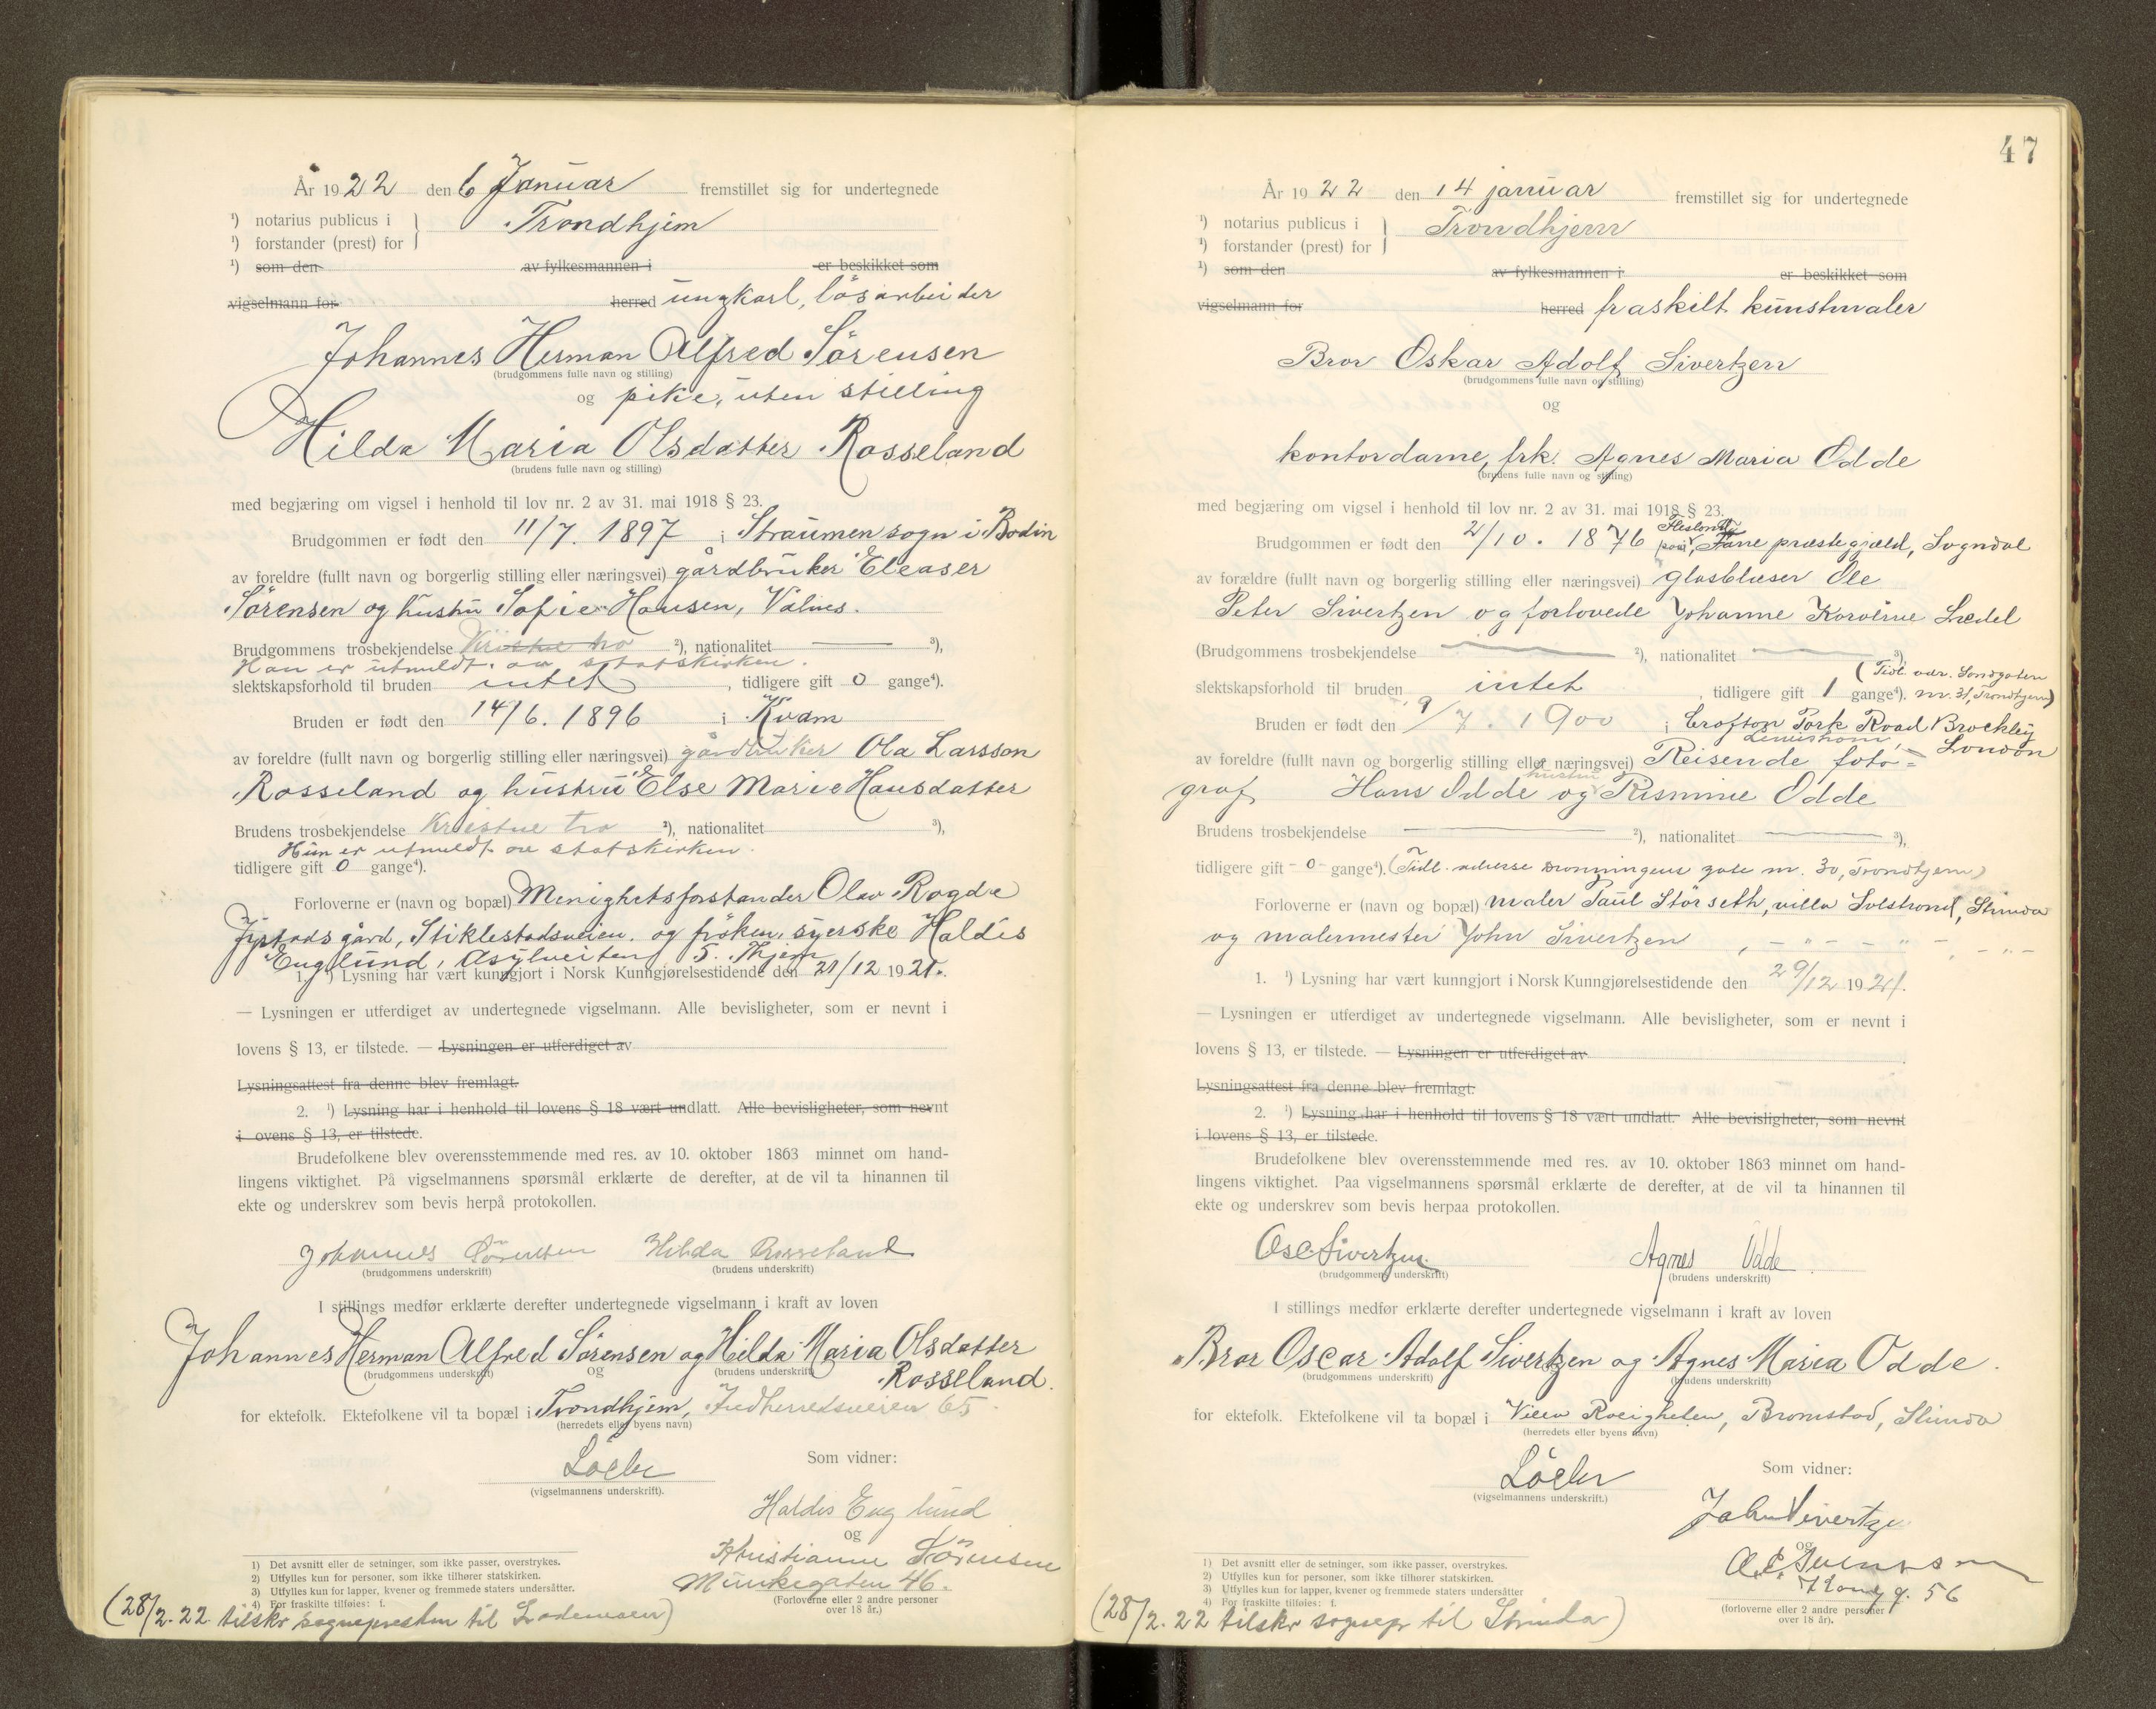 År 1922 den 6 Januar fremstillet sig for undertegnede
¹) notarius publicus i } Trondhjem
¹) forstander (prest) for
¹) som den av fylkesmannen i er beskikket som
vigselmann for herred ungkarl, løsarbeider
Johannes Herman Alfred Sörensen
(brudgommens fulle navn og stilling)
og pike, uten stilling
Hilda Maria Olsdatter Rosseland
(brudens fulle navn og stilling)
med begjæring om vigsel i henhold til lov nr. 2 av 31. mai 1918 § 23.
Brudgommen er født den 11/7. 1897 i Straumen sogn i Bodin
av foreldre (fullt navn og borgerlig stilling eller næringsvei) gårdbruker Eleaser
Sörensen og hustru Sofie Hansen, Valnes.
Brudgommens trosbekjendelse Kristne tro ²), nationalitet ³),
Han er utmeldt av statskirken.
slektskapsforhold til bruden intet, tidligere gift 0 gange⁴).
Bruden er født den 14/6. 1896 i Kvam
av foreldre (fullt navn og borgerlig stilling eller næringsvei) gårdbruker Ola Larsson
Rosseland og hustru Else Marie Hansdatter
Brudens trosbekjendelse Kristne tro ²), nationalitet ³),
Hun er utmeldt av statskirken.
tidligere gift 0 gange⁴).
Forloverne er (navn og bopæl) Menighetsforstander Olav Rogde
gård, Stiklestadsveien. og fröken, syerske Haldis
Englund, Asylveiten 5. Thjem
1. ¹) Lysning har vært kunngjort i Norsk Kunngjørelsestidende den 21/12 1921.
— Lysningen er utferdiget av undertegnede vigselmann. Alle bevisligheter, som er nevnt i
lovens § 13, er tilstede. — Lysningen er utferdiget av
Lysningsattest fra denne blev fremlagt.
2. ¹) Lysning har i henhold til lovens § 18 vært undlatt. Alle bevisligheter, som nevnt
i ovens § 13, er tilstede.
Brudefolkene blev overensstemmende med res. av 10. oktober 1863 minnet om hand-
lingens viktighet. På vigselmannens spørsmål erklærte de derefter, at de vil ta hinannen til
ekte og underskrev som bevis herpå protokollen.
Johannes Sörensen Hilda Rosseland
(brudgommens underskrift) (brudens underskrift)
I stillings medfør erklærte derefter undertegnede vigselmann i kraft av loven
Johannes Herman Alfred Sörensen og Hilda Maria Olsdatter
(brudgommens underskrift) og (brudens underskrift) Rosseland.
for ektefolk. Ektefolkene vil ta bopæl i Trondhjem, Indherredsveien 65
(herredets eller byens navn)
Som vidner:
(vigselmannens underskrift).
Haldis Englund
og
Kristianne Sörensen
Munkegaten 46.
(Forloverne eller 2 andre personer
over 18 år.)
1) Det avsnitt eller de setninger, som ikke passer, overstrykes.
2) Utfylles kun for personer, som ikke tilhører statskirken.
3) Utfylles kun for lapper, kvener og fremmede staters undersåtter.
4) For fraskilte tilføies: f.
(28/2. 22 tilskr sognepresten til Lademoen)
47
År 1922 den 14 januar fremstillet sig for undertegnede
¹) notarius publicus i } Trondhjem
¹) forstander (prest) for
¹) som den av fylkesmannen i er beskikket som
vigselmann for herred fraskilt kunstmaler
Bror Oskar Adolf Sivertzen
(brudgommens fulle navn og stilling)
og
kontordame, frk. Agnes Maria Odde
(brudens fulle navn og stilling)
med begjæring om vigsel i henhold til lov nr. 2 av 31. mai 1918 § 23.
Brudgommen er født den 2/10. 1876 præstegjæld, Sogndal
av forældre (fullt navn og borgerlig stilling eller næringsvei) glasblæser Ole
Peter Sivertzen og forlovede Johanne Karoline
(Brudgommens trosbekjendelse ²), nationalitet ³)
(Tidl. adr. Sandgaten
slektskapsforhold til bruden intet, tidligere gift 1 gange⁴). nr. 31, Trondhjem)
Bruden er født den 9/7. 1900 i Crofton Park Road Brockley
Lewisham, London
av foreldre (fullt navn og borgerlig stilling eller næringsvei) Reisende foto=
graf Hans Odde og hustru Odde
Brudens trosbekjendelse ²), nationalitet ³),
tidligere gift - 0 - gange⁴). (Tidl. adresse Dronningens gate nr. 30, Trondhjem)
Forloverne er (navn og bopæl) maler Paul Störseth, villa Solstrand, Strinda
og malermester John Sivertzen, - " - - " - , - " -
1. ¹) Lysning har vært kunngjort i Norsk Kunngjørelsestidende den 29/12 1921.
— Lysningen er utferdiget av undertegnede vigselmann. Alle bevisligheter, som er nevnt i
lovens § 13, er tilstede. — Lysningen er utferdiget av
Lysningsattest fra denne blev fremlagt.
2. ¹) Lysning har i henhold til lovens § 18 vært undlatt. Alle bevisligheter, som nevnt
i lovens § 13, er tilstede.
Brudefolkene blev overensstemmende med res. av 10. oktober 1863 minnet om hand-
lingens viktighet. Paa vigselmannens spørsmål erklærte de derefter, at de vil ta hinannen til
ekte og underskrev som bevis herpaa protokollen.
Osc Sivertzen Agnes Odde
(brudgommens underskrift) (brudens underskrift)
I stillings medfør erklærte derefter undertegnede vigselmann i kraft av loven
Bror Oscar Adolf Sivertzen og Agnes Maria Odde.
(brudgommens underskrift) (brudens underskrift)
for ektefolk. Ektefolkene vil ta bopæl i Villa Roligheten, Bromstad, Strinda
(herredets eller byens navn)
Som vidner:
(vigselmannens underskrift.)
John Sivertzen
og
56
(forloverne eller 2 andre personer
over 18 år).
1) Det avsnitt eller de setninger, som ikke passer, overstrykes.
2) Utfylles kun for personer, som ikke tilhører statskirken.
3) Utfylles kun for lapper, kvener og fremmede staters undersåtter
4) For fraskilte tilføies: f.
(28/2. 22 tilskr sognepr til Strinda)